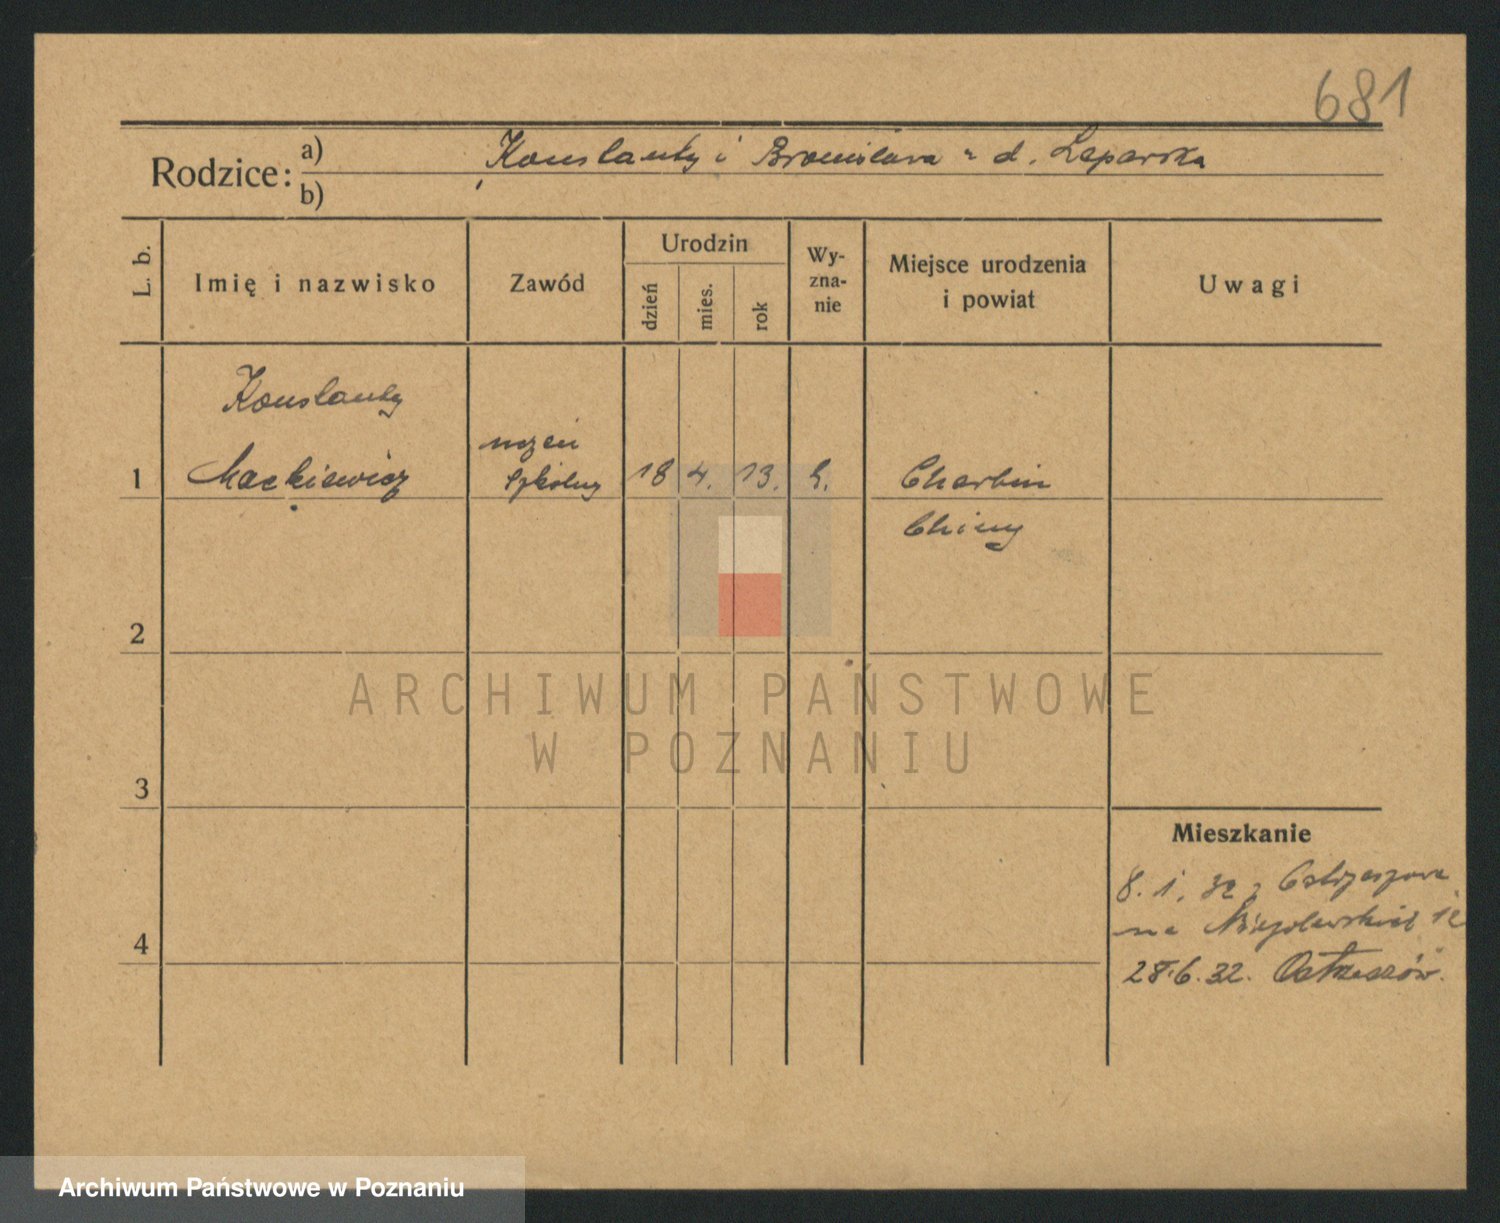 681
Rodzice: a) Konstanty i Bronisława z d. Laparska
b)
L. b.
Imię i nazwisko
Zawód
Urodzin
dzień
mies.
rok
Wy-
zna-
nie
Miejsce urodzenia
i powiat
Uwagi
Konstanty
1 Mackiewicz
uczeń
szkolny
18 4. 13.
Charbin
Chiny
2
3
4
ARCHIWUM PAŃSTWOWE
W POZNANIU
Mieszkanie
8.1.32 z Ostrzeszowa
na Niegolewskich 12
28.6.32. Ostrzeszów.
Archiwum Państwowe w Poznaniu